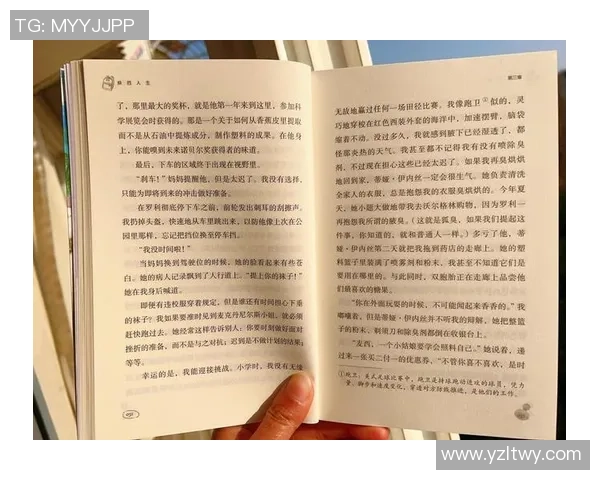 TG: MYYJJPP
麻 烦 人 生
了，那里最大的奖杯，就是他第一年来到这里，参加科
学展览会时获得的。那是一个关于如何从香蕉皮里提取
而不是从石油中提炼成分，制作塑料的成果。在他身
上，你能嗅到未来诺贝尔奖获得者的味道。
最后，下车的区域终于出现在视野里。
“刹车！”妈妈提醒他，但是太迟了。我没有选择，
只能为即将到来的冲击做好准备。
在罗利彻底停下车之前，前轮发出刺耳的刮擦声，
我扔掉头盔，快速地从车里跳出来，以防他像上次在公
园里那样，忘记把挡位换至停车挡。
“我没时间啦！”
当妈妈换到驾驶位的时候，她的脸看起来有些苍
白。她的病人记录飘到了人行道上。“提上你的袜子！”她
在我身后喊道。
即便有连校服穿着规定，但是谁还有时间担心下垂
的袜子？我如果要准时见到麦克丹尼尔斯小姐，就必须
赶快跑过去。她经常这样告诉别人：你要时刻做好面对
挫折的准备，而不是与之对抗；迟到是不做计划的结果；
等等。
幸运的是，我能迎接挑战。小学时，我没有天缘
第三章
无故地赢过任何一场田径比赛。我像跑卫①似的，灵
巧地穿梭在红色西装外套的海洋中，加速摆臂，脑袋
缩着不动。没过多久，我就感到腋下已经湿透了，都
怪那炎热的天气。我甚至都不记得我有没有喷除臭
剂，不过现在担心这些已经太迟了。如果我再臭烘烘
地回到家，蒂娅·伊内丝一定会很生气。她负责清洗
全家人的衣服，总是抱怨我的衣服臭烘烘的。今年夏
天，她小题大做地带我去沃尔格林购物，因为罗利一
再抱怨我所谓的腋臭。（这就是孤臭，如果我们提起这
件事，你知道的，就和普通人一样。）多亏了他，蒂
娅·伊内丝第二天就把我拖到药店的走廊上。她的塑
料篮子里装满了喷雾剂和粉末，我甚至不知道它们是
要用在哪里的。与此同时，双胞胎正在走廊上品尝他
们最喜欢的糖果。
“你在外面玩耍的时候，不可能闻起来香香的。”我
嘟囔着，但是蒂娅·伊内丝并不听我的辩解，她把整篮
子的粉末、剃须刀和除臭剂都倒在收银台上。
“麦西，一个小姑娘要学会照料自己。”她说着，递
过来一张买二付一的优惠券。“不管你喜不喜欢，是时
①跑卫：美式足球比赛中，跑卫是持球跑动进攻的球员，凭力
量、脚步和速度变化，穿透对方防线推进，是他们的工作。
www.yzltwy.com